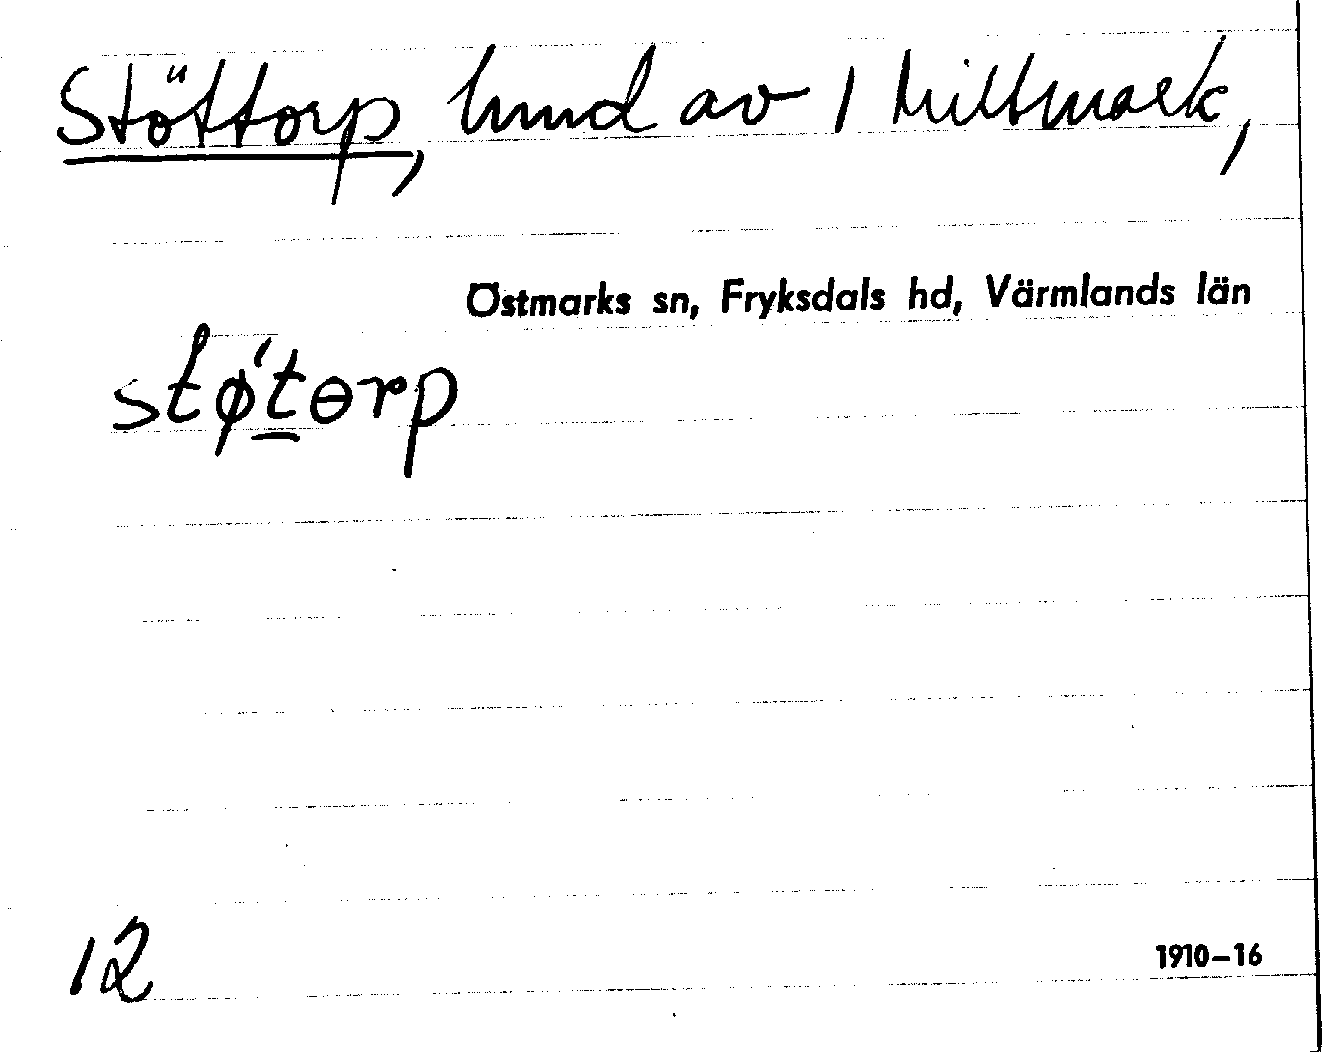 Stöttorp, hmd av 1 Millmark,
Östmarks sn, Fryksdals hd, Värmlands län
stø´t̲ɵrp
12
1910–16